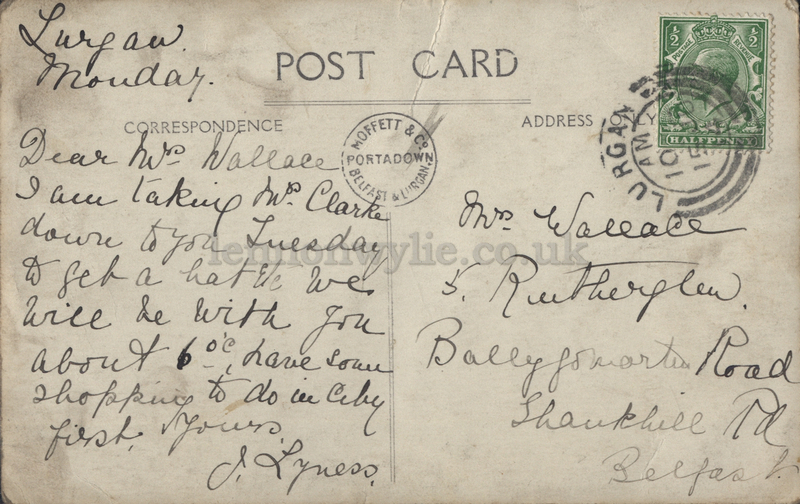 Lurgan.
Monday.
POST CARD
CORRESPONDENCE
ADDRESS ONLY
MOFFETT & Co.
PORTADOWN
BELFAST & LURGAN.
½ ½
POSTAGE REVENUE
HALFPENNY
LURGAN
AM
10
15
Dear Mrs Wallace
I am taking Mrs. Clarke
down to you Tuesday
to get a hat We
will be with you
about 6 oc, have some
shopping to do in City
first. Yours,
J. Lyness.
Mrs Wallace
5. Rutherglen.
Ballygomartin Road
Shankhill Rd
Belfast.
lennonwylie.co.uk